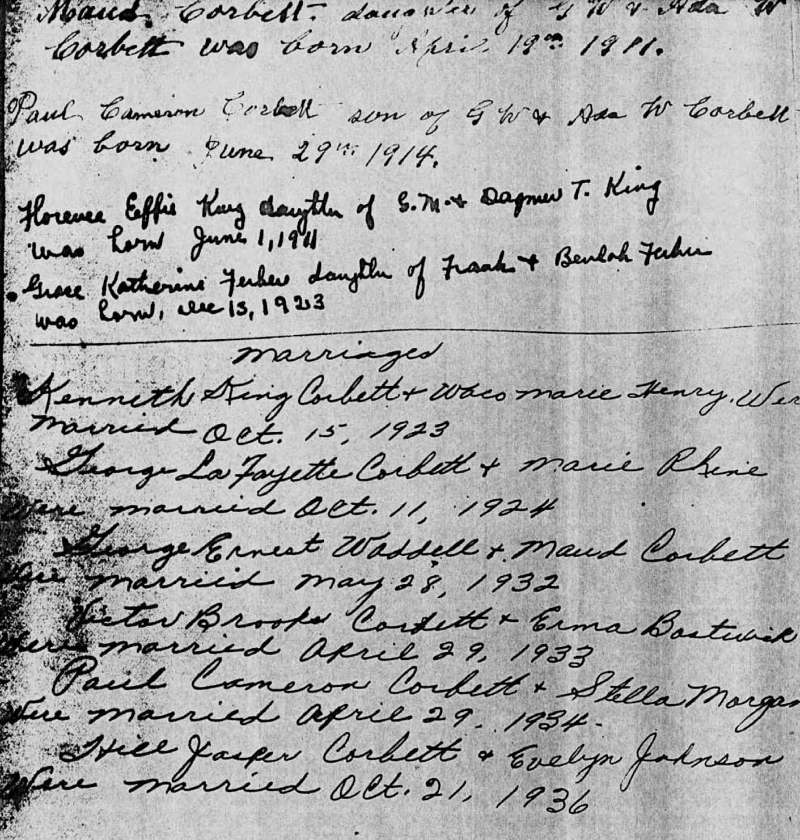 Maud Corbett daughter of G W & Ada W
Corbett was born April 19th 1911.
Paul Cameron Corbett son of G W & Ada W Corbett
was born June 29th 1914.
Florence Effie King daughter of G.M. & Dagmer T. King
was born June 1, 1911
Grace Katherine Ferber daughter of Frank & Beulah Ferber
was born, Dec 13, 1923
Marriages
Kenneth King Corbett & Waco Marie Henry. Wer
married Oct. 15, 1923
George LaFayette Corbett & Marie Rhine
were married Oct. 11, 1924
George Ernest Waddell & Maud Corbett
were married May 28, 1932
Victor Brooks Corbett & Erma Bostwick
were married April 29, 1933
Paul Cameron Corbett & Stella Morgan
were married April 29, 1934-
Hill Jasper Corbett & Evelyn Johnson
Were married Oct. 21, 1936